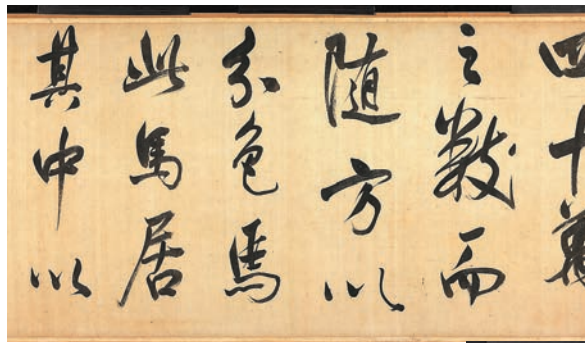 四十萬
之數而
随方以
分色焉
此馬居
其中以